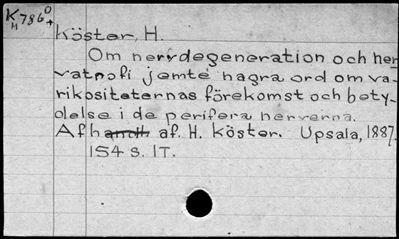 K 786 D
H +
Köster, H.
Om nervdegeneration och ner
vatrofi jemte nagra ord om va-
rikositeternas förekomst och bety-
delse i de perifera nerverna.
Afh af. H. Köster. Upsala, 1887.
154 s. 1T.